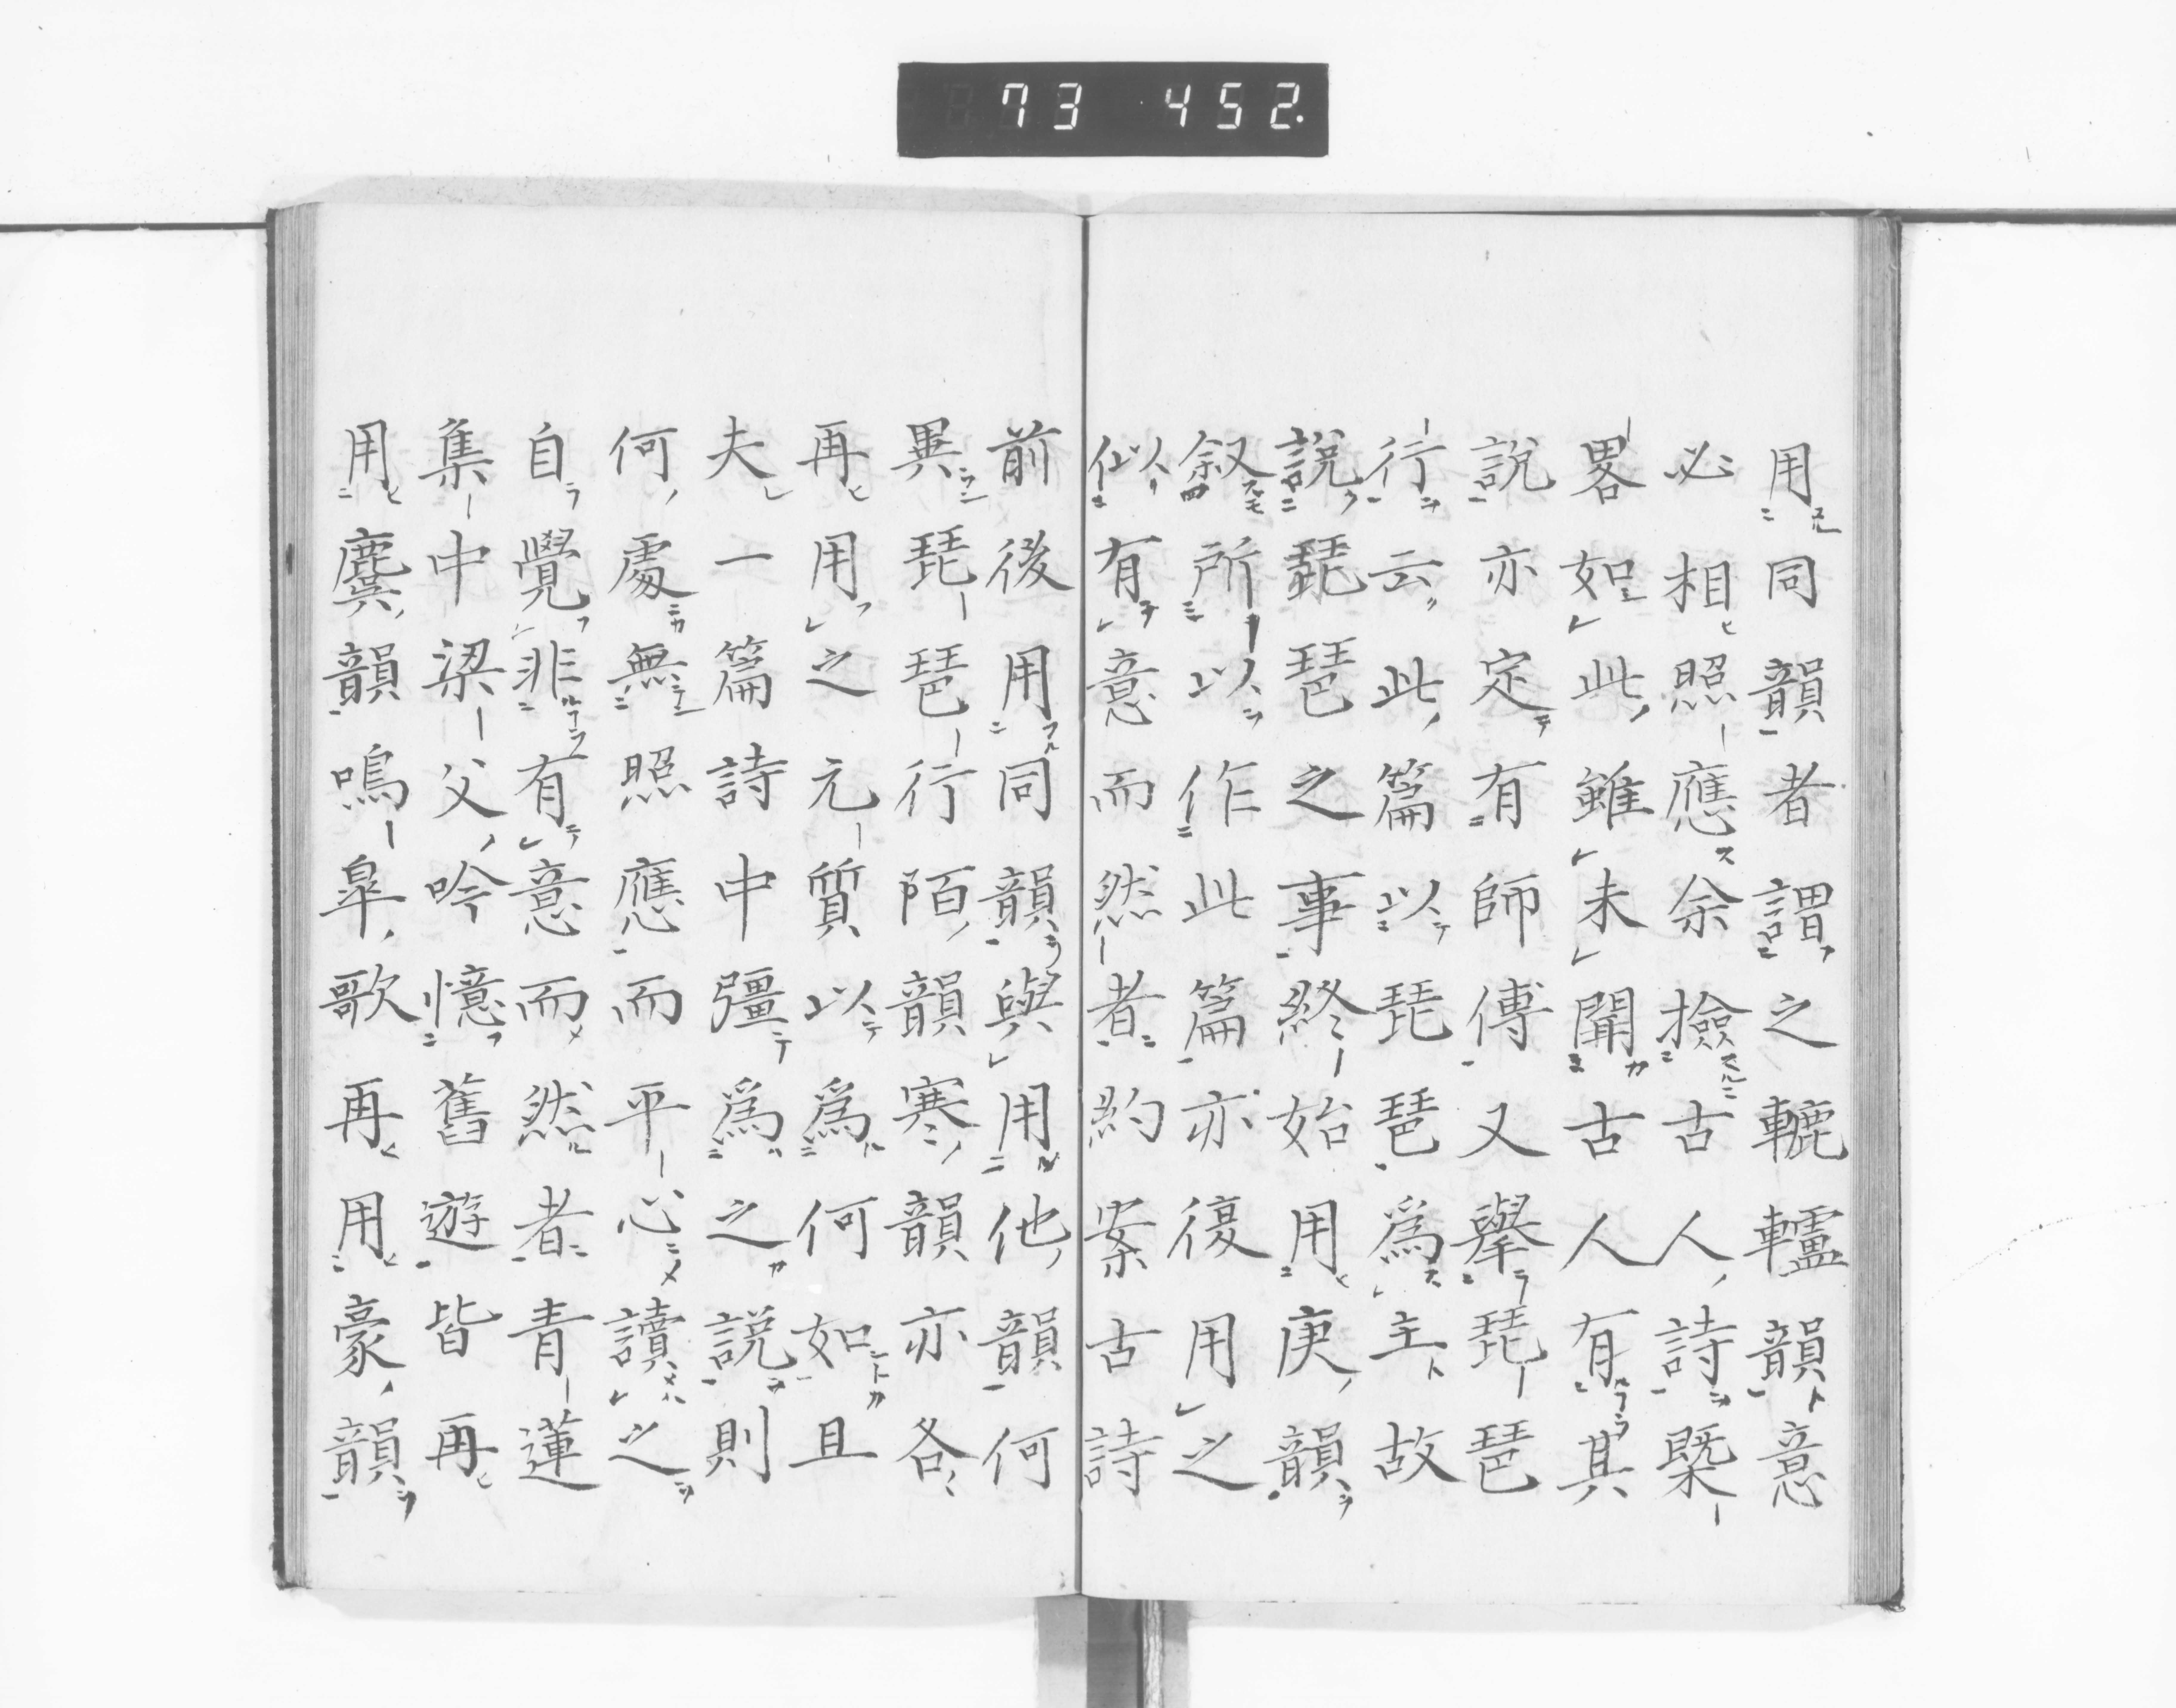 73 452.
用同韻者謂之轆轤韻意
必相照應余撿古人詩槩
畧如此雖未聞古人有其
說亦定有師傳又擧琵琶
行云此篇以琵琶爲主故
說琵琶之事終始用庚韻
叙所以作此篇亦復用之
似有意而然者約案古詩
前後用同韻與用他韻何
異琵琶行陌韻寒韻亦各
再用之元質以爲何如且
夫一篇詩中彊爲之説則
何處無照應而平心讀之
自覺非有意而然者青蓮
集中梁父吟憶舊遊皆再
用麌韻鳴皐歌再用豪韻